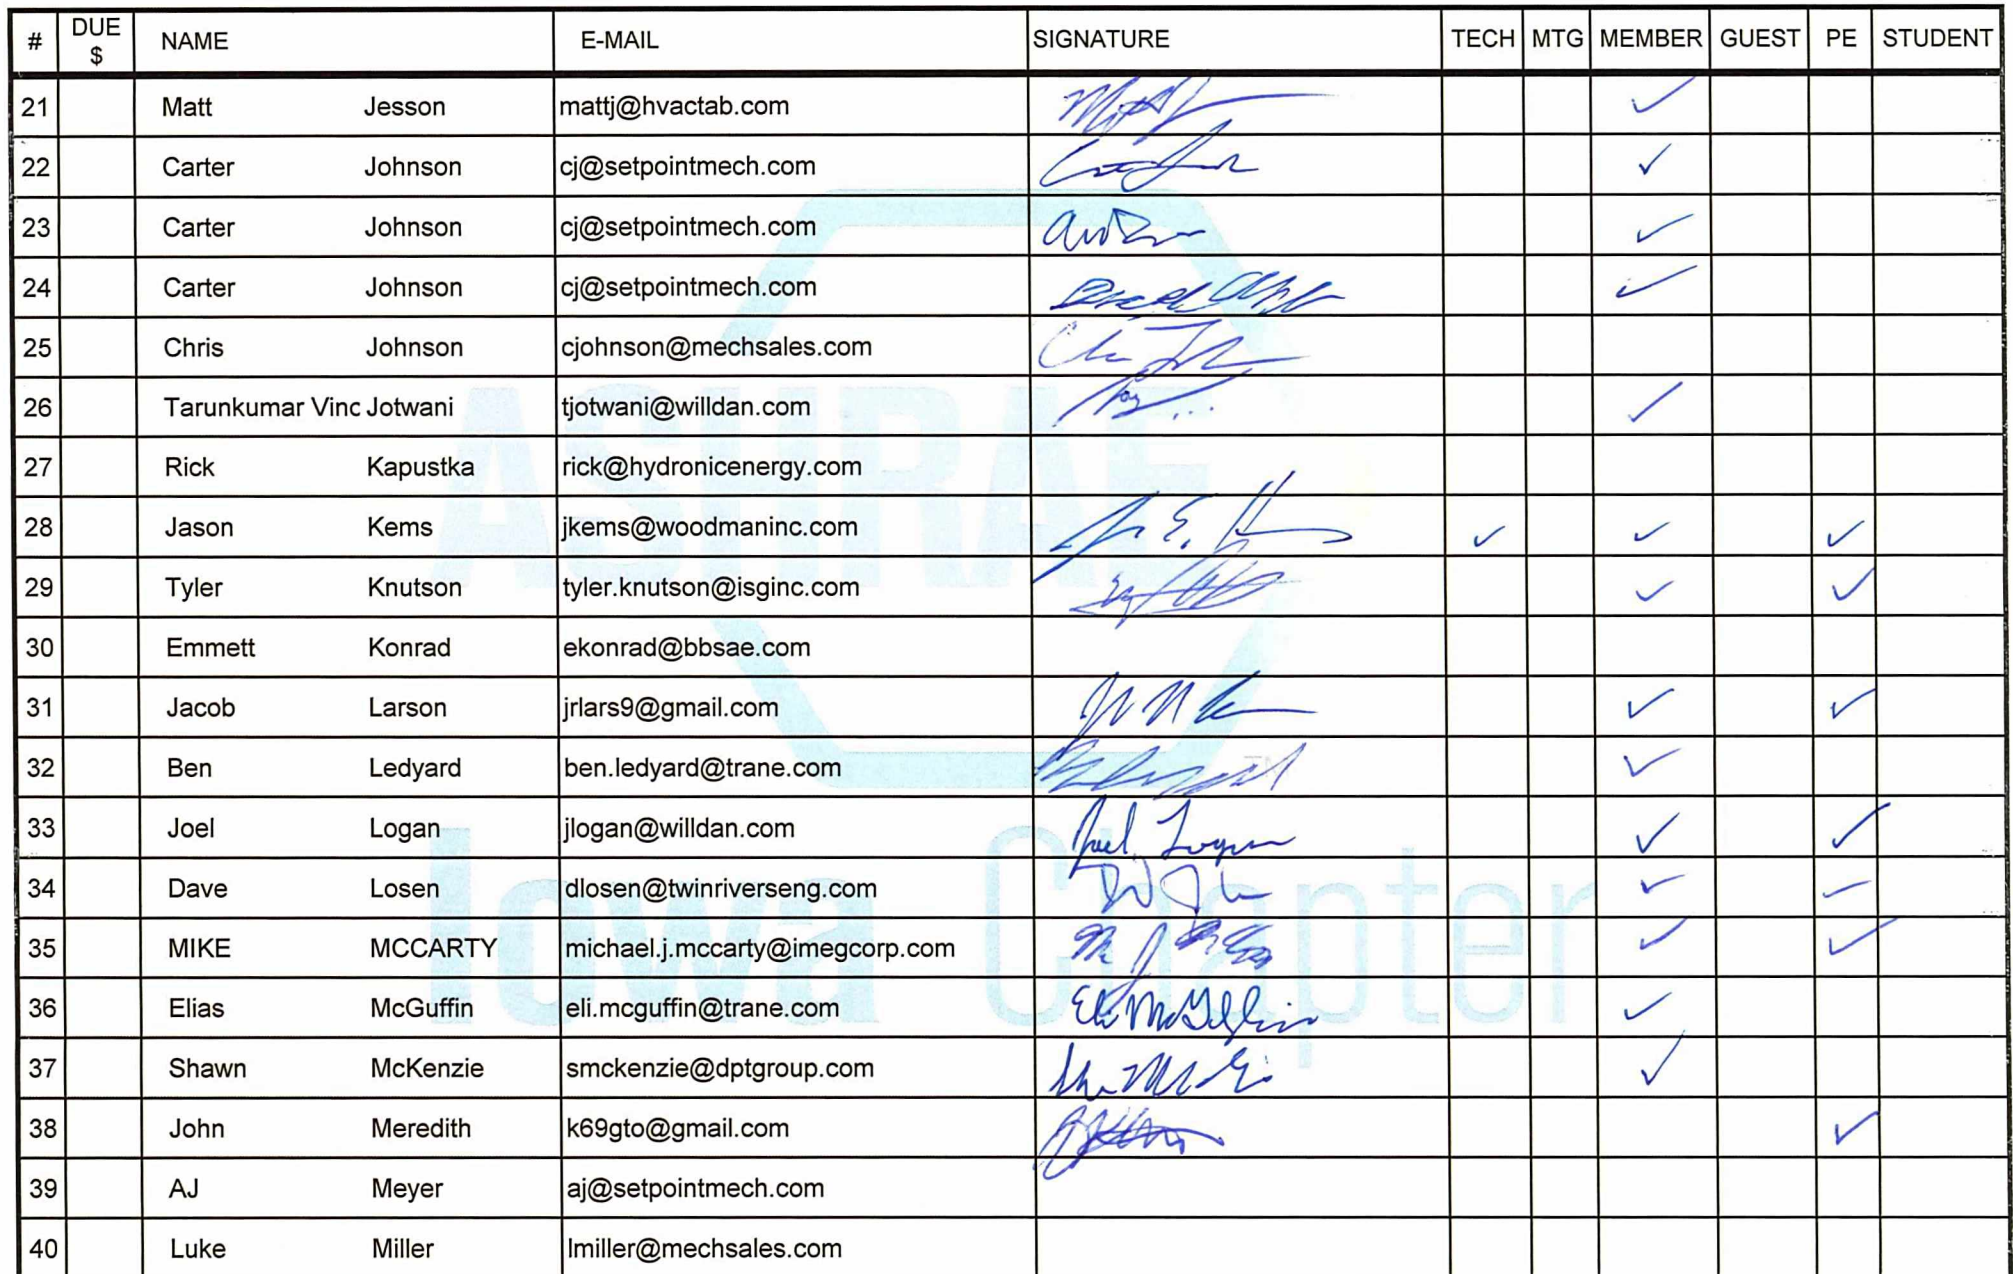 # DUE $ NAME E-MAIL SIGNATURE TECH MTG MEMBER GUEST PE STUDENT
21 Matt Jesson mattj@hvactab.com ✓
22 Carter Johnson cj@setpointmech.com ✓
23 Carter Johnson cj@setpointmech.com ✓
24 Carter Johnson cj@setpointmech.com ✓
25 Chris Johnson cjohnson@mechsales.com
26 Tarunkumar Vinc Jotwani tjotwani@willdan.com ✓
27 Rick Kapustka rick@hydronicenergy.com
28 Jason Kems jkems@woodmaninc.com ✓ ✓ ✓
29 Tyler Knutson tyler.knutson@isginc.com ✓ ✓
30 Emmett Konrad ekonrad@bbsae.com
31 Jacob Larson jrlars9@gmail.com ✓ ✓
32 Ben Ledyard ben.ledyard@trane.com ✓
33 Joel Logan jlogan@willdan.com Joel Logan ✓ ✓
34 Dave Losen dlosen@twinriverseng.com ✓ ✓
35 MIKE MCCARTY michael.j.mccarty@imegcorp.com ✓ ✓
36 Elias McGuffin eli.mcguffin@trane.com Eli McGuffin ✓
37 Shawn McKenzie smckenzie@dptgroup.com ✓
38 John Meredith k69gto@gmail.com ✓
39 AJ Meyer aj@setpointmech.com
40 Luke Miller lmiller@mechsales.com
ASHRAE
TM
Iowa Chapter